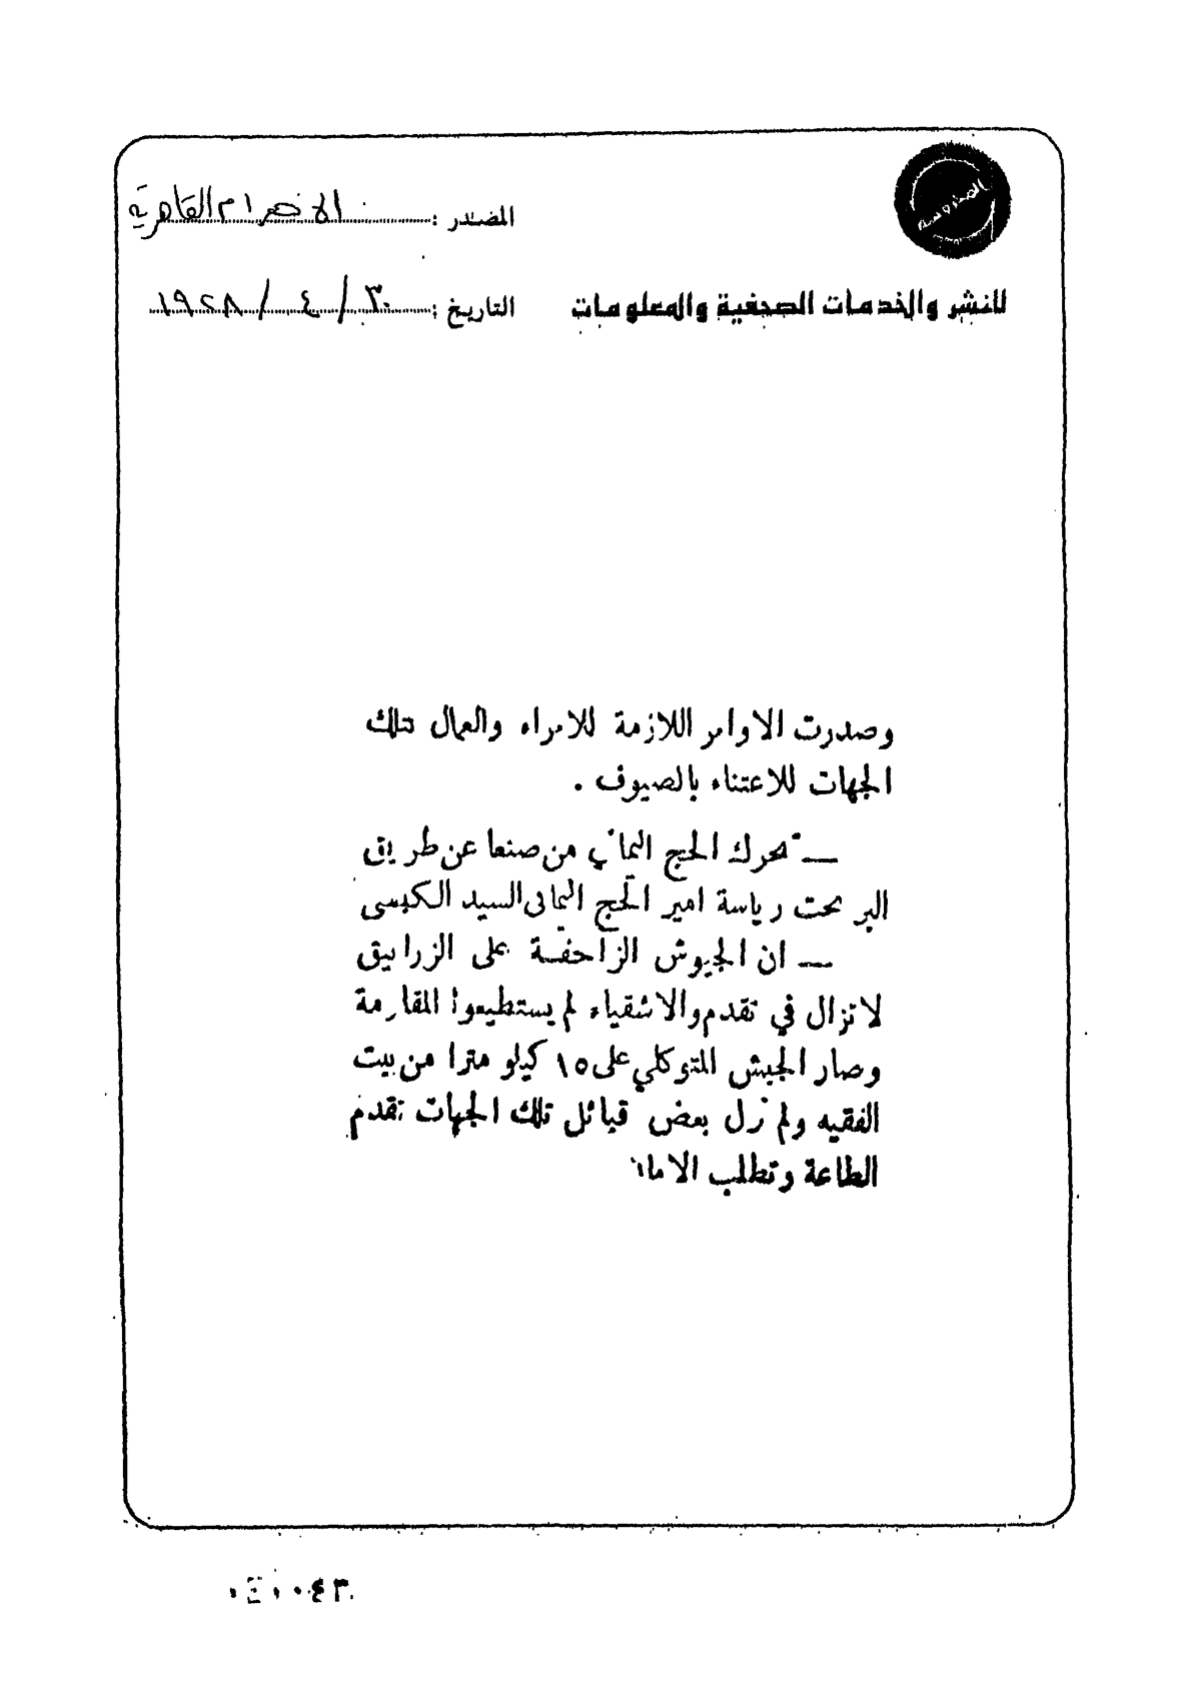 المصدر : الاهرام القاهرية
للنشر والخدمات الصحفية والمعلومات
التاريخ : ٣٠ / ٤ / ١٩٢٨
وصدرت الاوامر اللازمة للامراء والعمال تلك
الجهات للاعتناء بالضيوف .
— تحرك الحج اليماني من صنعا عن طريق
البر تحت رياسة امير الحج اليمانى السيد الكبسى
— ان الجيوش الزاحفة على الزرانيق
لاتزال في تقدم والاشقياء لم يستطيعوا المقاومة
وصار الجيش المتوكلي على ١٥ كيلو مترا من بيت
الفقيه ولم تزل بعض قبائل تلك الجهات تقدم
الطاعة وتطلب الامان